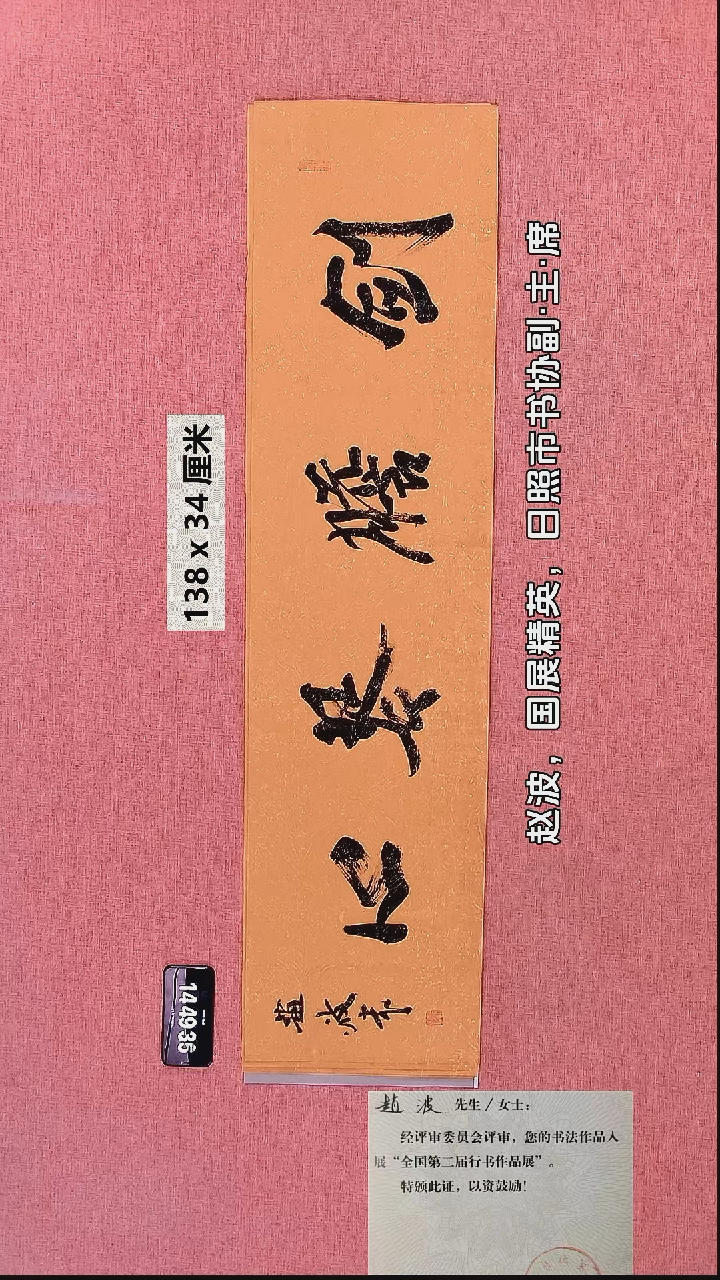 劍膽琴心
138 x 34 厘米
赵波，国展精英，日照市书协副·主·席
144935
趙波 先生/女士：
经评审委员会评审，您的书法作品入
展“全国第二届行书作品展”。
特颁此证，以资鼓励！